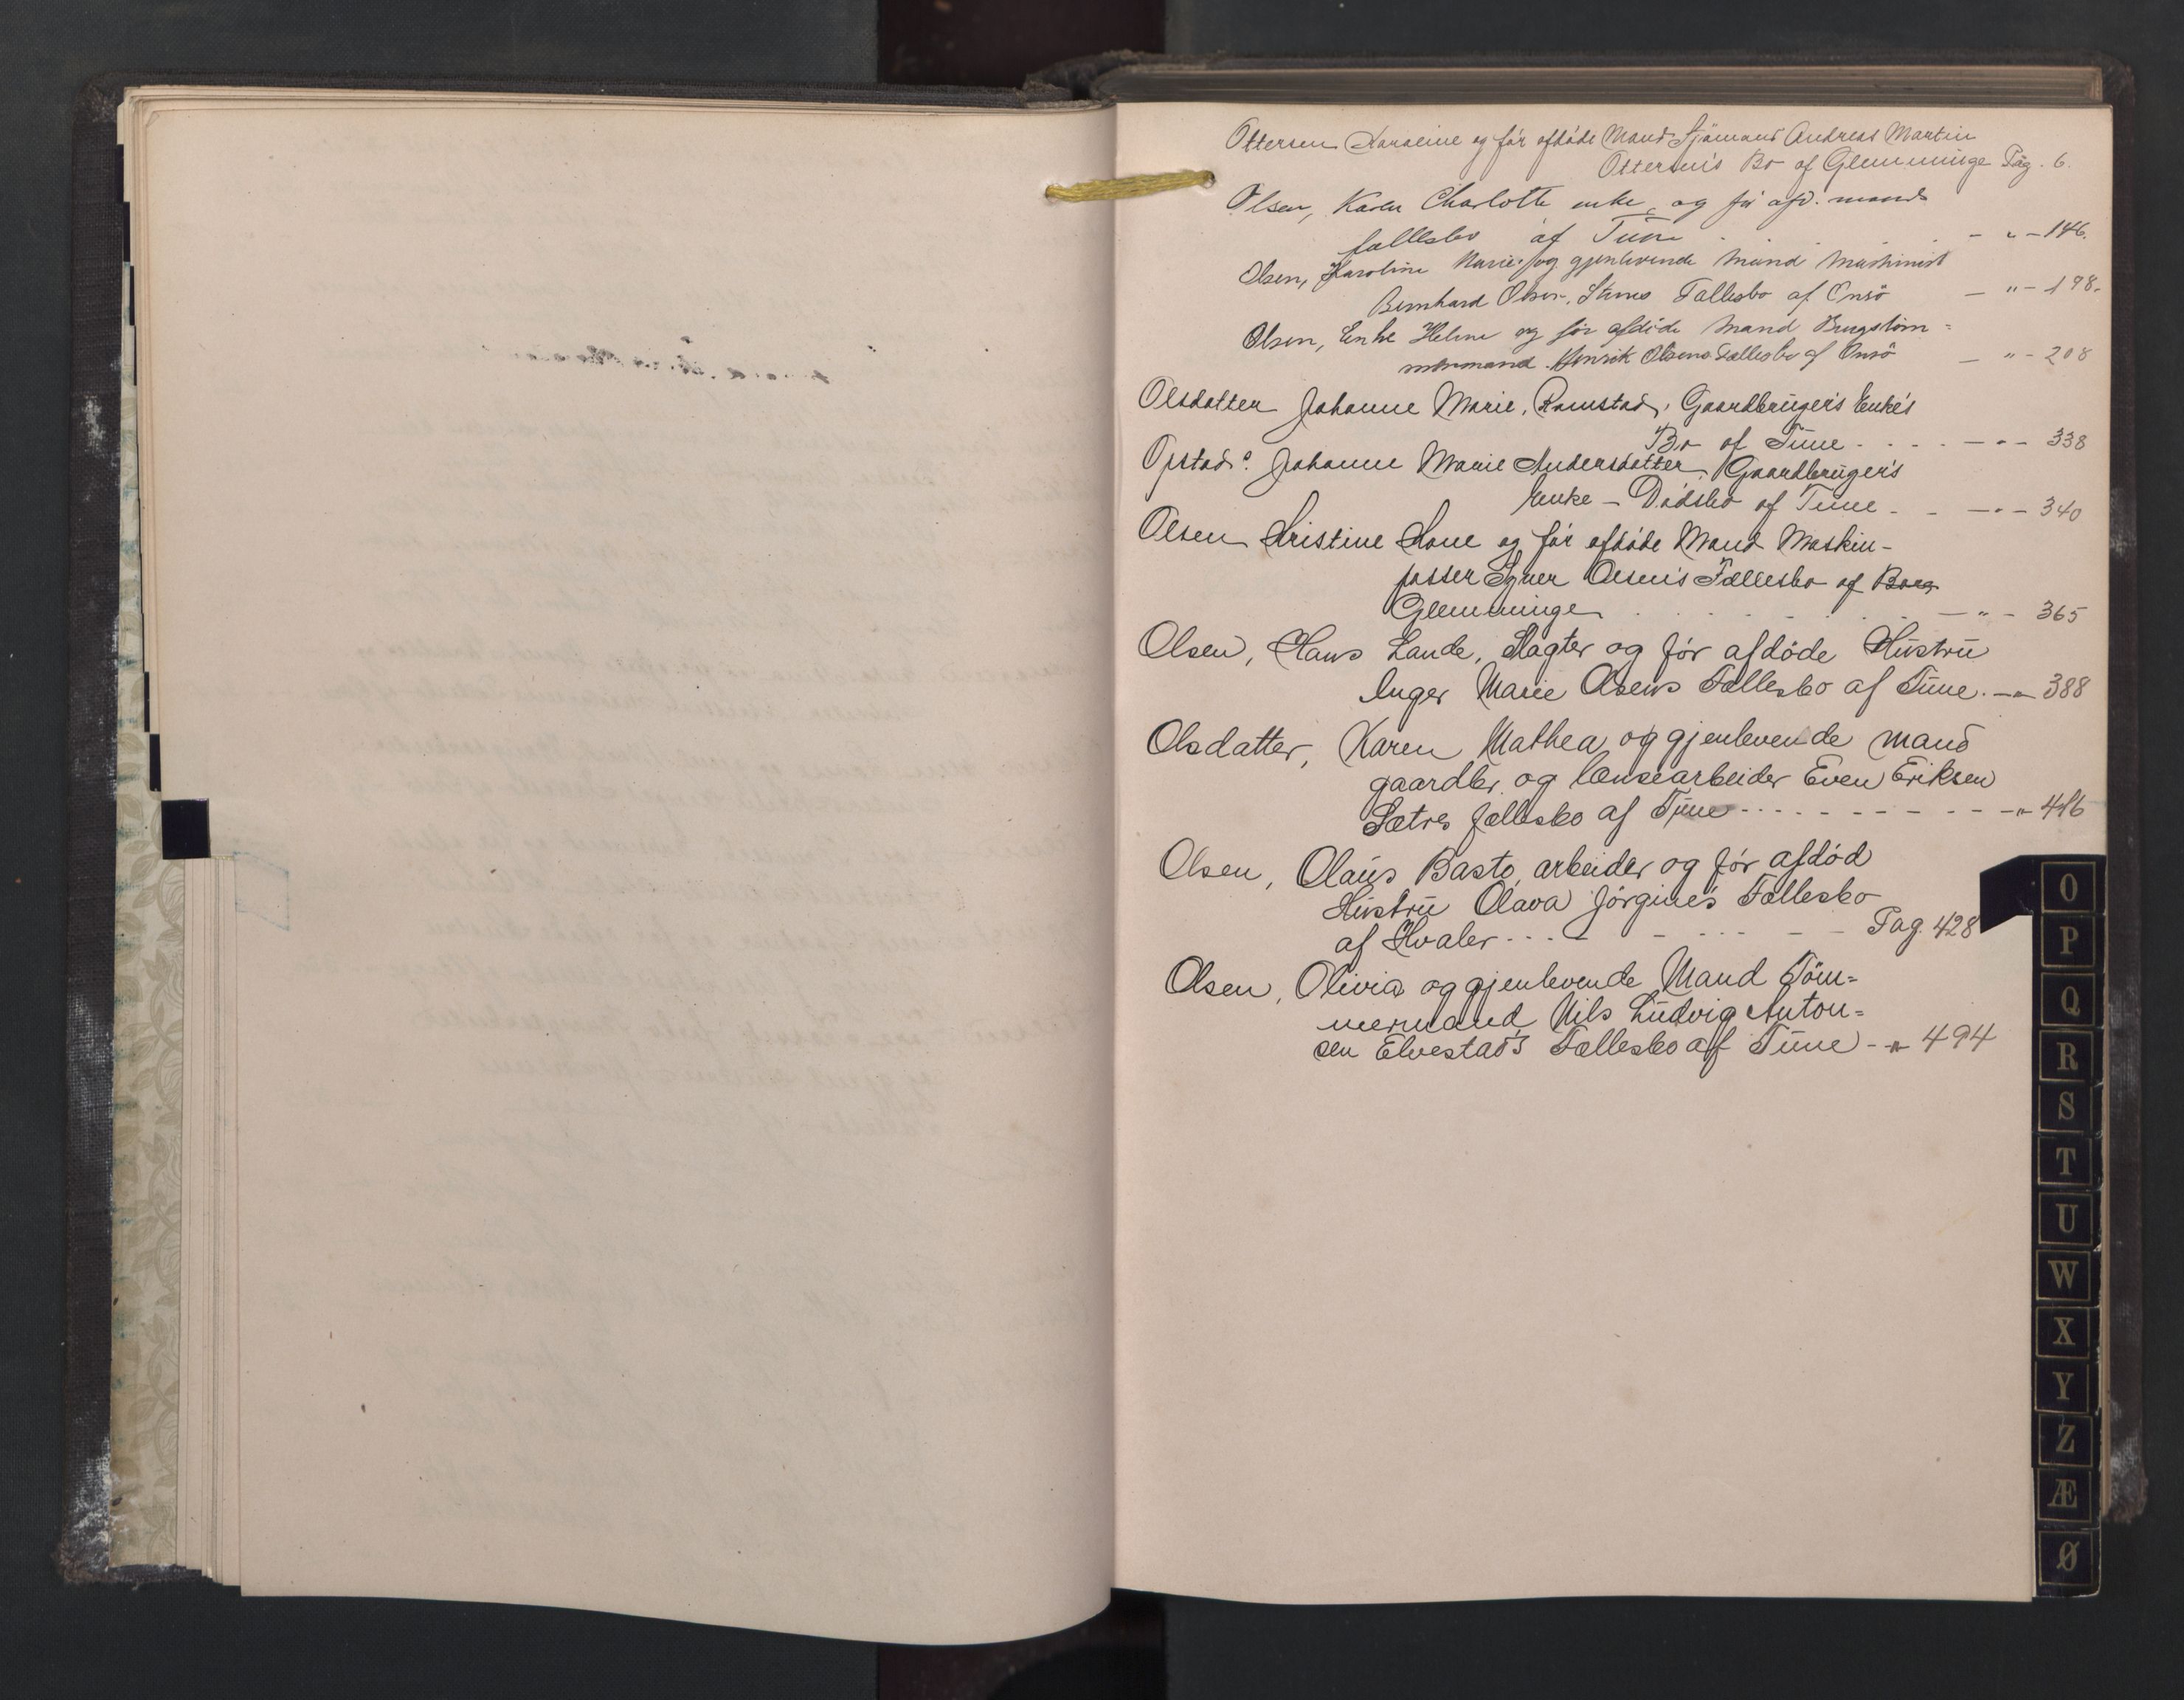 Ottersen Karoline og før afdøde Mand Sjømand Andreas Martin
Ottersen's Bo af Glemminge Pag. 6.
Olsen, Karen Charlotte enke, og før afd. mands
fællesbo af Tune . . . - " - 146.
Olsen, Karoline Marie og gjenlevende mand Maskinist
Bernhard Olsen, Fællesbo af Onsö - " - 198.
Olsen, Enke Helene og før afdøde Mand
mermand Henrik Olsens Fællesbo af Onsö - " - 208
Olsdatter Johanne Marie, Ramstad, Gaardbruger's Enke's
Bo af Tune - - - - - " - 338
Opstad: Johanne Marie Andersdatter, Gaardbruger's
Enke - Dødsbo af Tune - - - " - 340
Olsen Kristine Lone og før afdøde Mand Maskin-
passer Olsen's Fællesbo af Borg
Glemminge . . . . . - " - 365
Olsen, Hans Lande, Slagter og før afdøde Hustru
Inger Marie Olsens Fællesbo af Tune. - " - 388
Olsdatter, Karen Mathea og gjenlevende mand
gaardbr. og lensearbeider Even Eriksen
Sætres fællesbo af Tune - - - - - - - - " 416
Olsen, Olaus Bastø, arbeider og før afdød
Hustru Olava Jørgine's Fællesbo
af Hvaler - - - - - - - - - Pag. 428
Olsen, Olivia og gjenlevende Mand Tøm=
mermand Nils Ludvig Anton=
sen Elvestad's Fællesbo af Tune - " - 494
O
P
Q
R
S
T
U
W
X
Y
Z
Æ
Ø